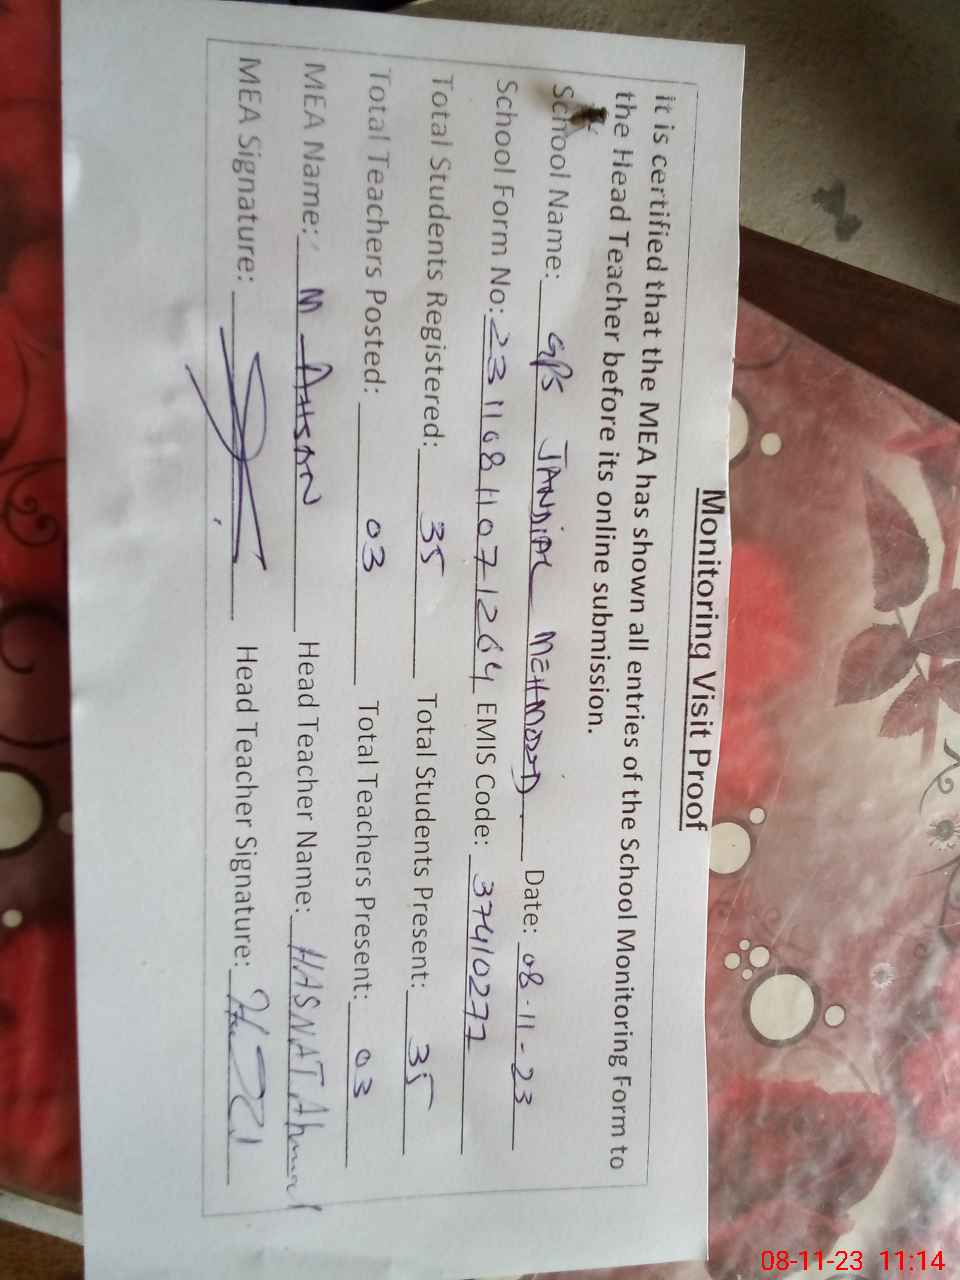 Monitoring Visit Proof
it is certified that the MEA has shown all entries of the School Monitoring Form to
the Head Teacher before its online submission.
School Name: GPS JANDIAL MEHMOOD. Date: 08-11-23
School Form No: 23110811071264 EMIS Code: 37410277
Total Students Registered: 35 Total Students Present: 35
Total Teachers Posted: 03 Total Teachers Present: 03
MEA Name: M AHSAN Head Teacher Name: HASNAT Ahmad
MEA Signature: Head Teacher Signature:
08-11-23 11:14